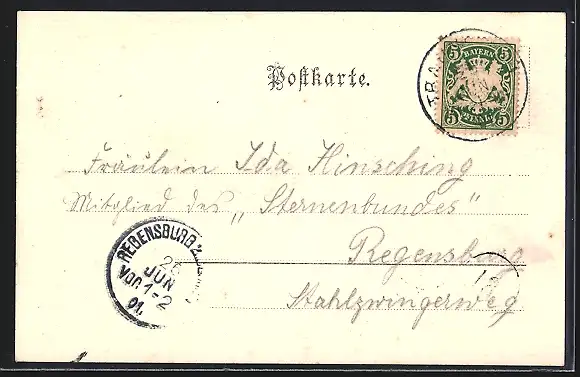 5 BAYERN 5
5 PFENNIG 5
Postkarte.
Fräulein Ida Hinsching
Mitglied des „Sternenbundes"
Regensburg
Stahlzwingerweg
REGENSBURG 2
26
JUN
VOR. 1-2
01.